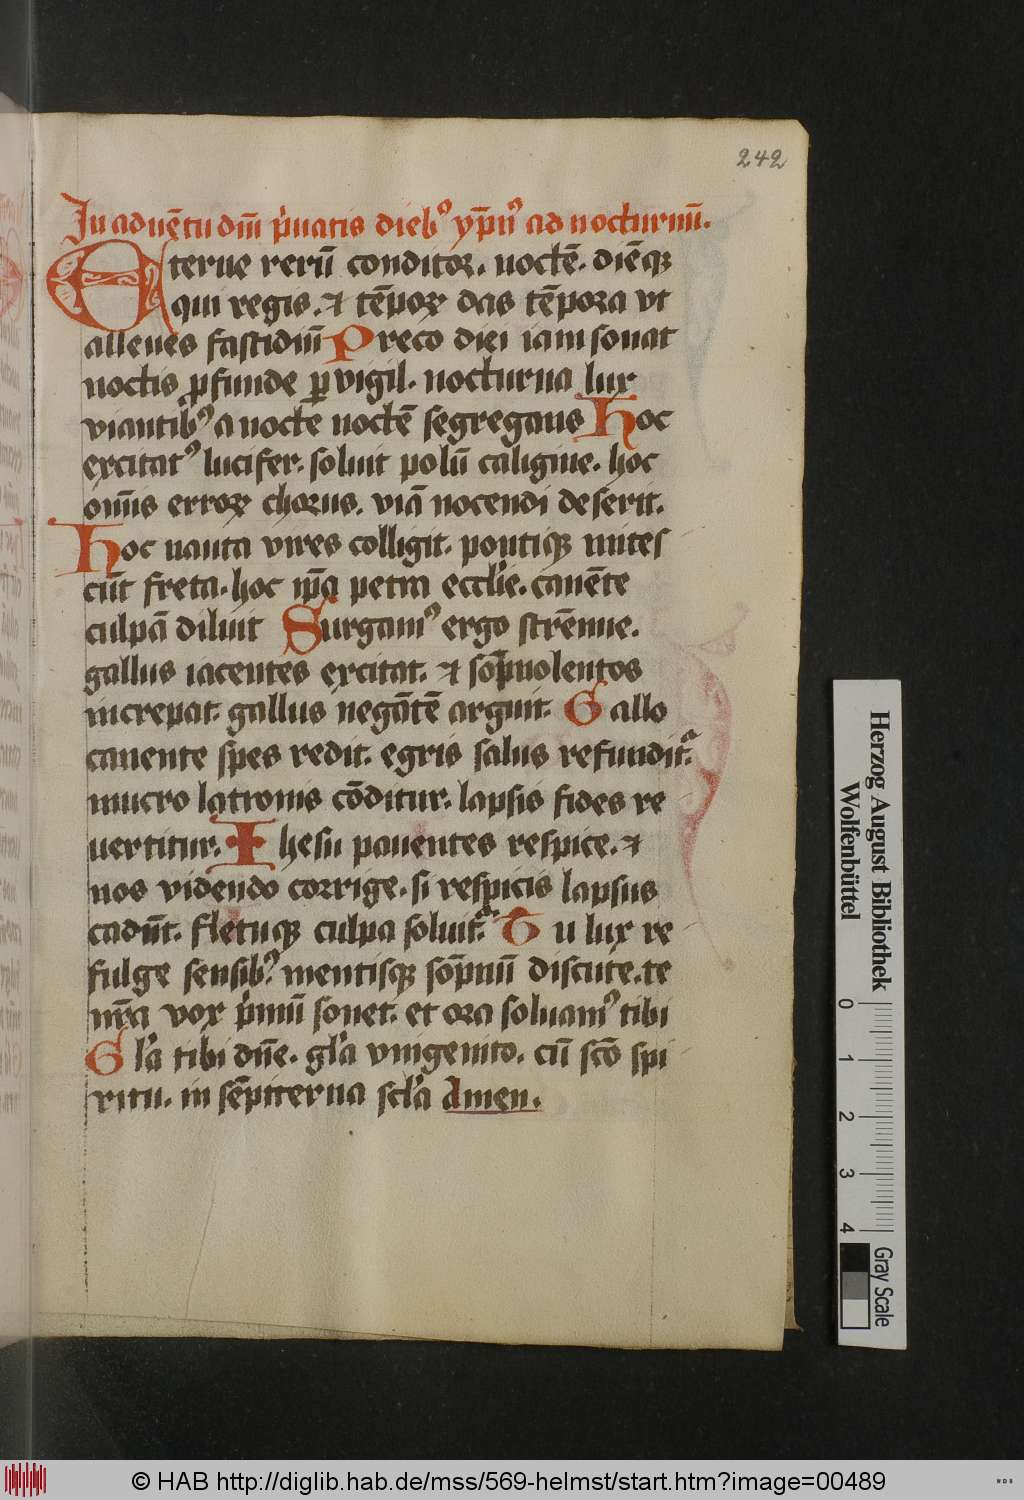 242
In aduētu dnī p̍uatis diebꝰ yp̄nꝰ ad nocturnū.
Eterne rerū conditor. noctē. diēqꝫ
qui regis. ⁊ tēpoꝝ das tēpora vt
alleues fastidiū Preco diei iam sonat
noctis ꝓfunde ꝑvigil. nocturna lux
viantibꝰ a nocte noctē segregans Hoc
excitatꝰ lucifer. soluit polū caligine. hoc
om̄is erroꝝ chorus. viā nocendi deserit.
Hoc nauta vires colligit. pontiqꝫ mites
cūt freta. hoc ip̄a petra eccl̍ie. canēte
culpā diluit Surgamꝰ ergo strēnue.
gallus iacentes excitat. ⁊ sōpnolentos
increpat. gallus negātē arguit. Gallo
canente spes redit. egris salus refundit᷑.
mucro latronis cōditur. lapsis fides re
uertitur. Ihesu pauentes respice. ⁊
nos videndo corrige. si respicis lapsus
cadūt. fletuqꝫ culpa soluit᷑. Tu lux re
fulge sensibꝰ. mentisqꝫ sōpnū discute. te
nr̄a vox p̍mū sonet. et ora soluamꝰ tibi
Gl̍a tibi dn̄e. gl̍a vnigenito. cū scō spi
ritu. in sēpiterna scl̍a Amen.
Herzog August Bibliothek
Wolfenbüttel
0 1 2 3 4
Gray Scale
© HAB http://diglib.hab.de/mss/569-helmst/start.htm?image=00489